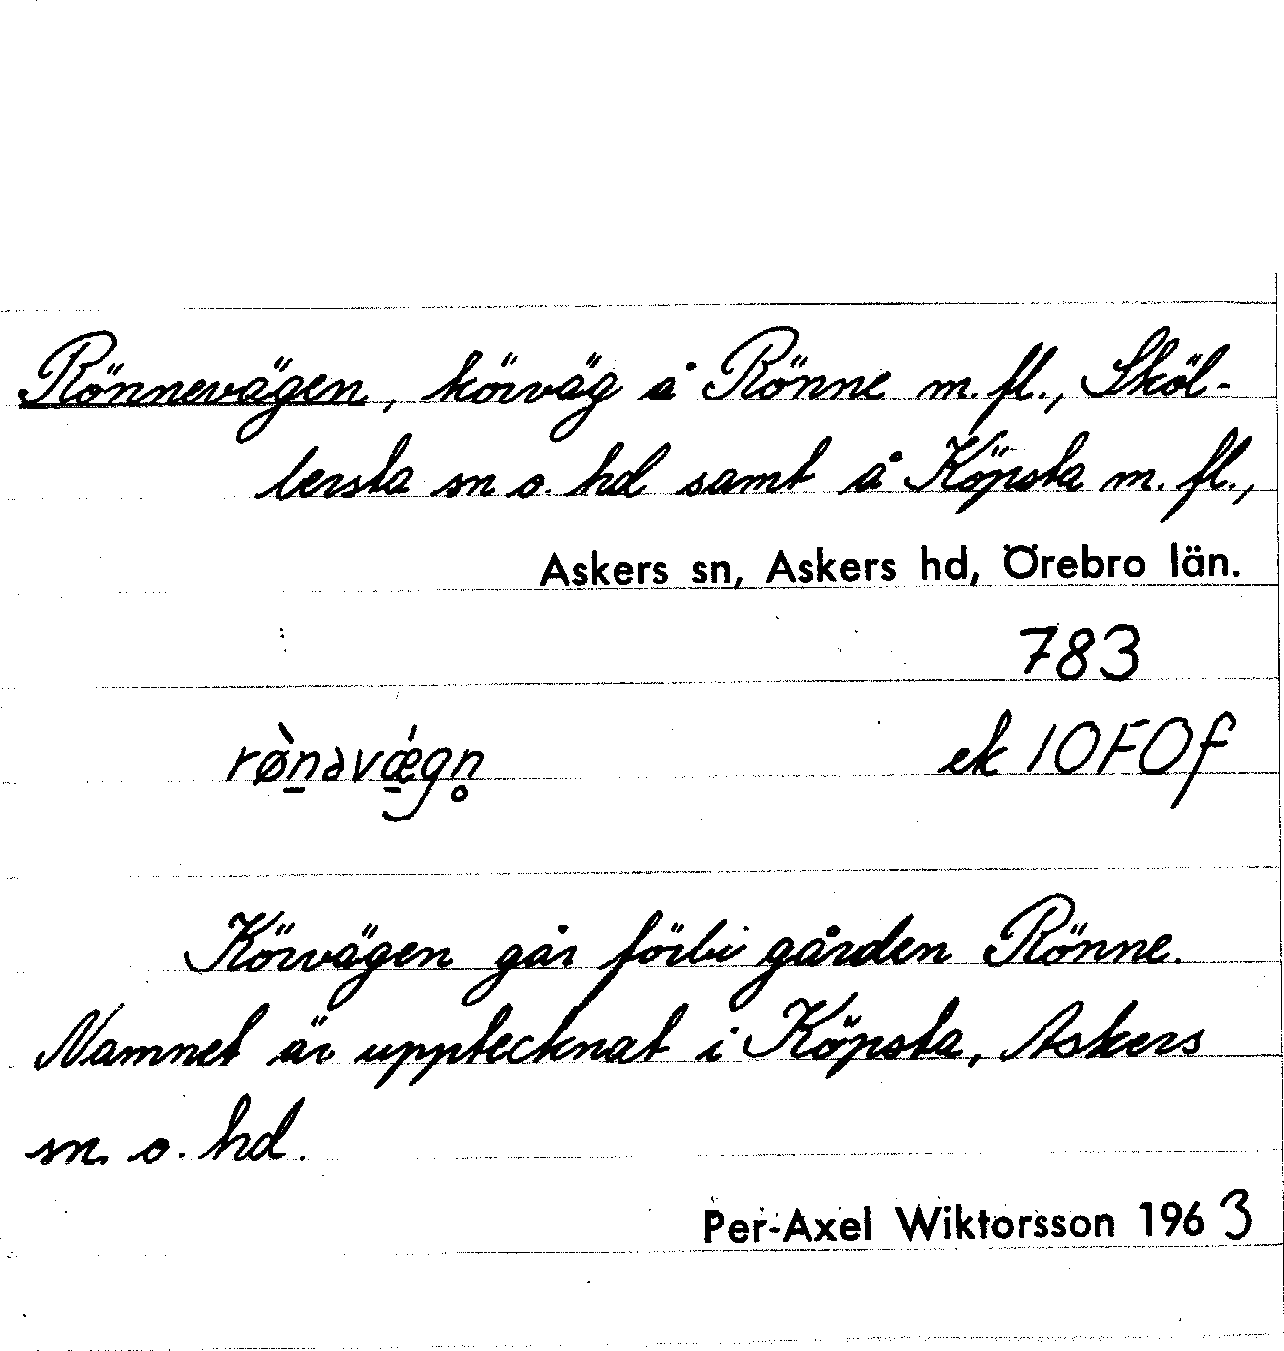 Rönnevägen, körväg å Rönne m. fl., Sköl-
lersta sn o. hd samt å Köpsta m. fl.,
Askers sn, Askers hd, Örebro län.
783
rø̀n̲əvǽ̲gn̥ ek 10F0f
Körvägen går förbi gården Rönne.
Namnet är upptecknat i Köpsta, Askers
sn o. hd.
Per-Axel Wiktorsson 1963